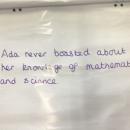 Ada never boasted about
her knowledge of mathemat
and science